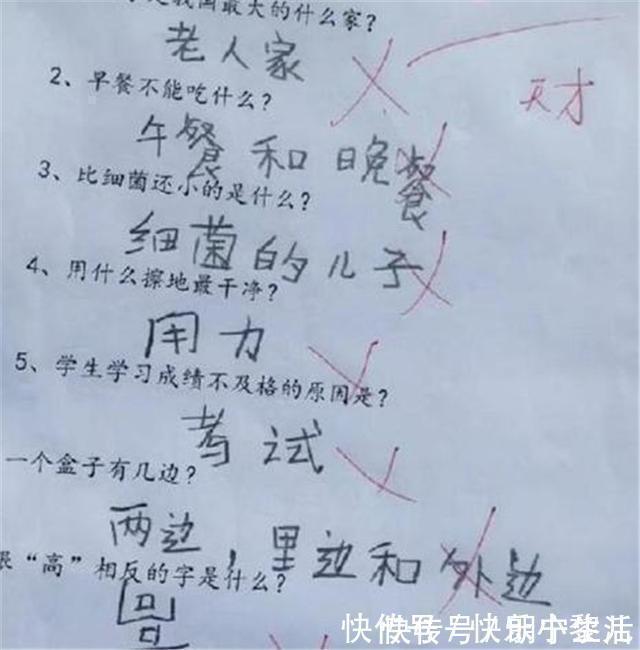 是我国最大的什么家?
老人家
天才
2、早餐不能吃什么?
午餐和晚餐
3、比细菌还小的是什么?
细菌的儿子
4、用什么擦地最干净?
用力
5、学生学习成绩不及格的原因是?
考试
一个盒子有几边?
两边，里边和外边
“高”相反的字是什么?
快传号